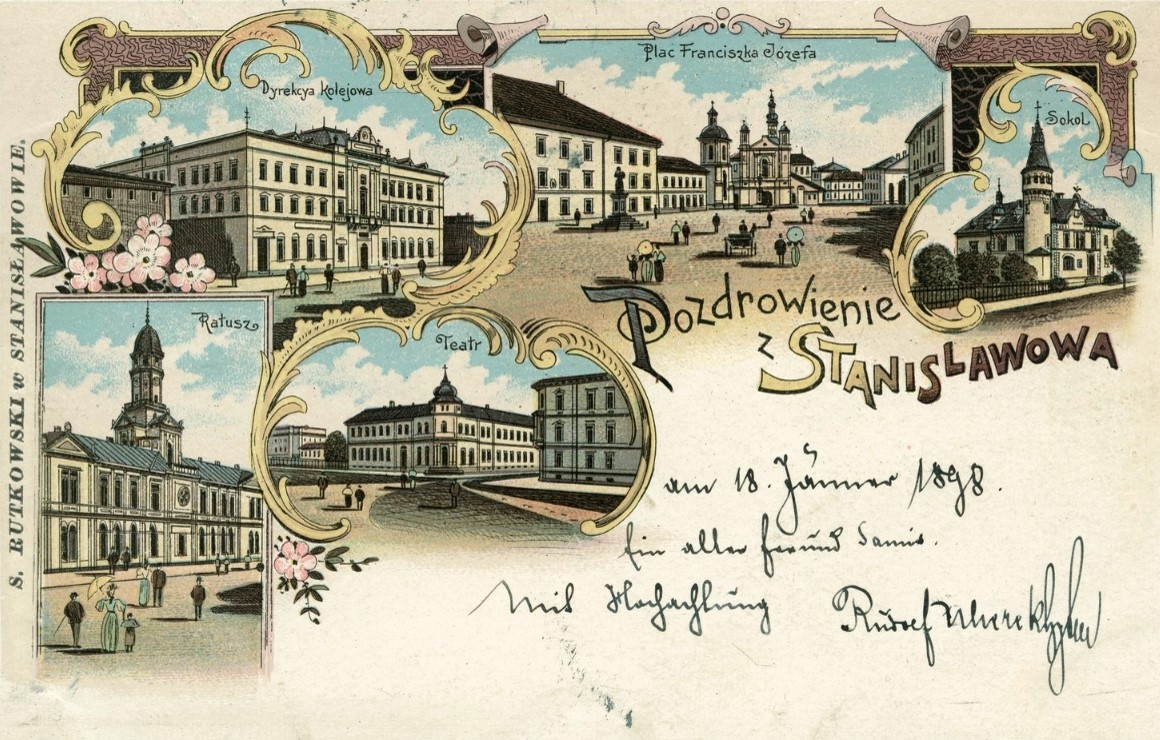 Plac Franciszka Józefa
Dyrekcya kolejowa
Sokol
Ratusz
Teatr
Pozdrowienie
z STANISLAWOWA
S. RUTKOWSKI w STANISŁAWOWIE.
am 18. Jänner 1898.
Ein alter Freund
Mit Hochachtung Rudolf